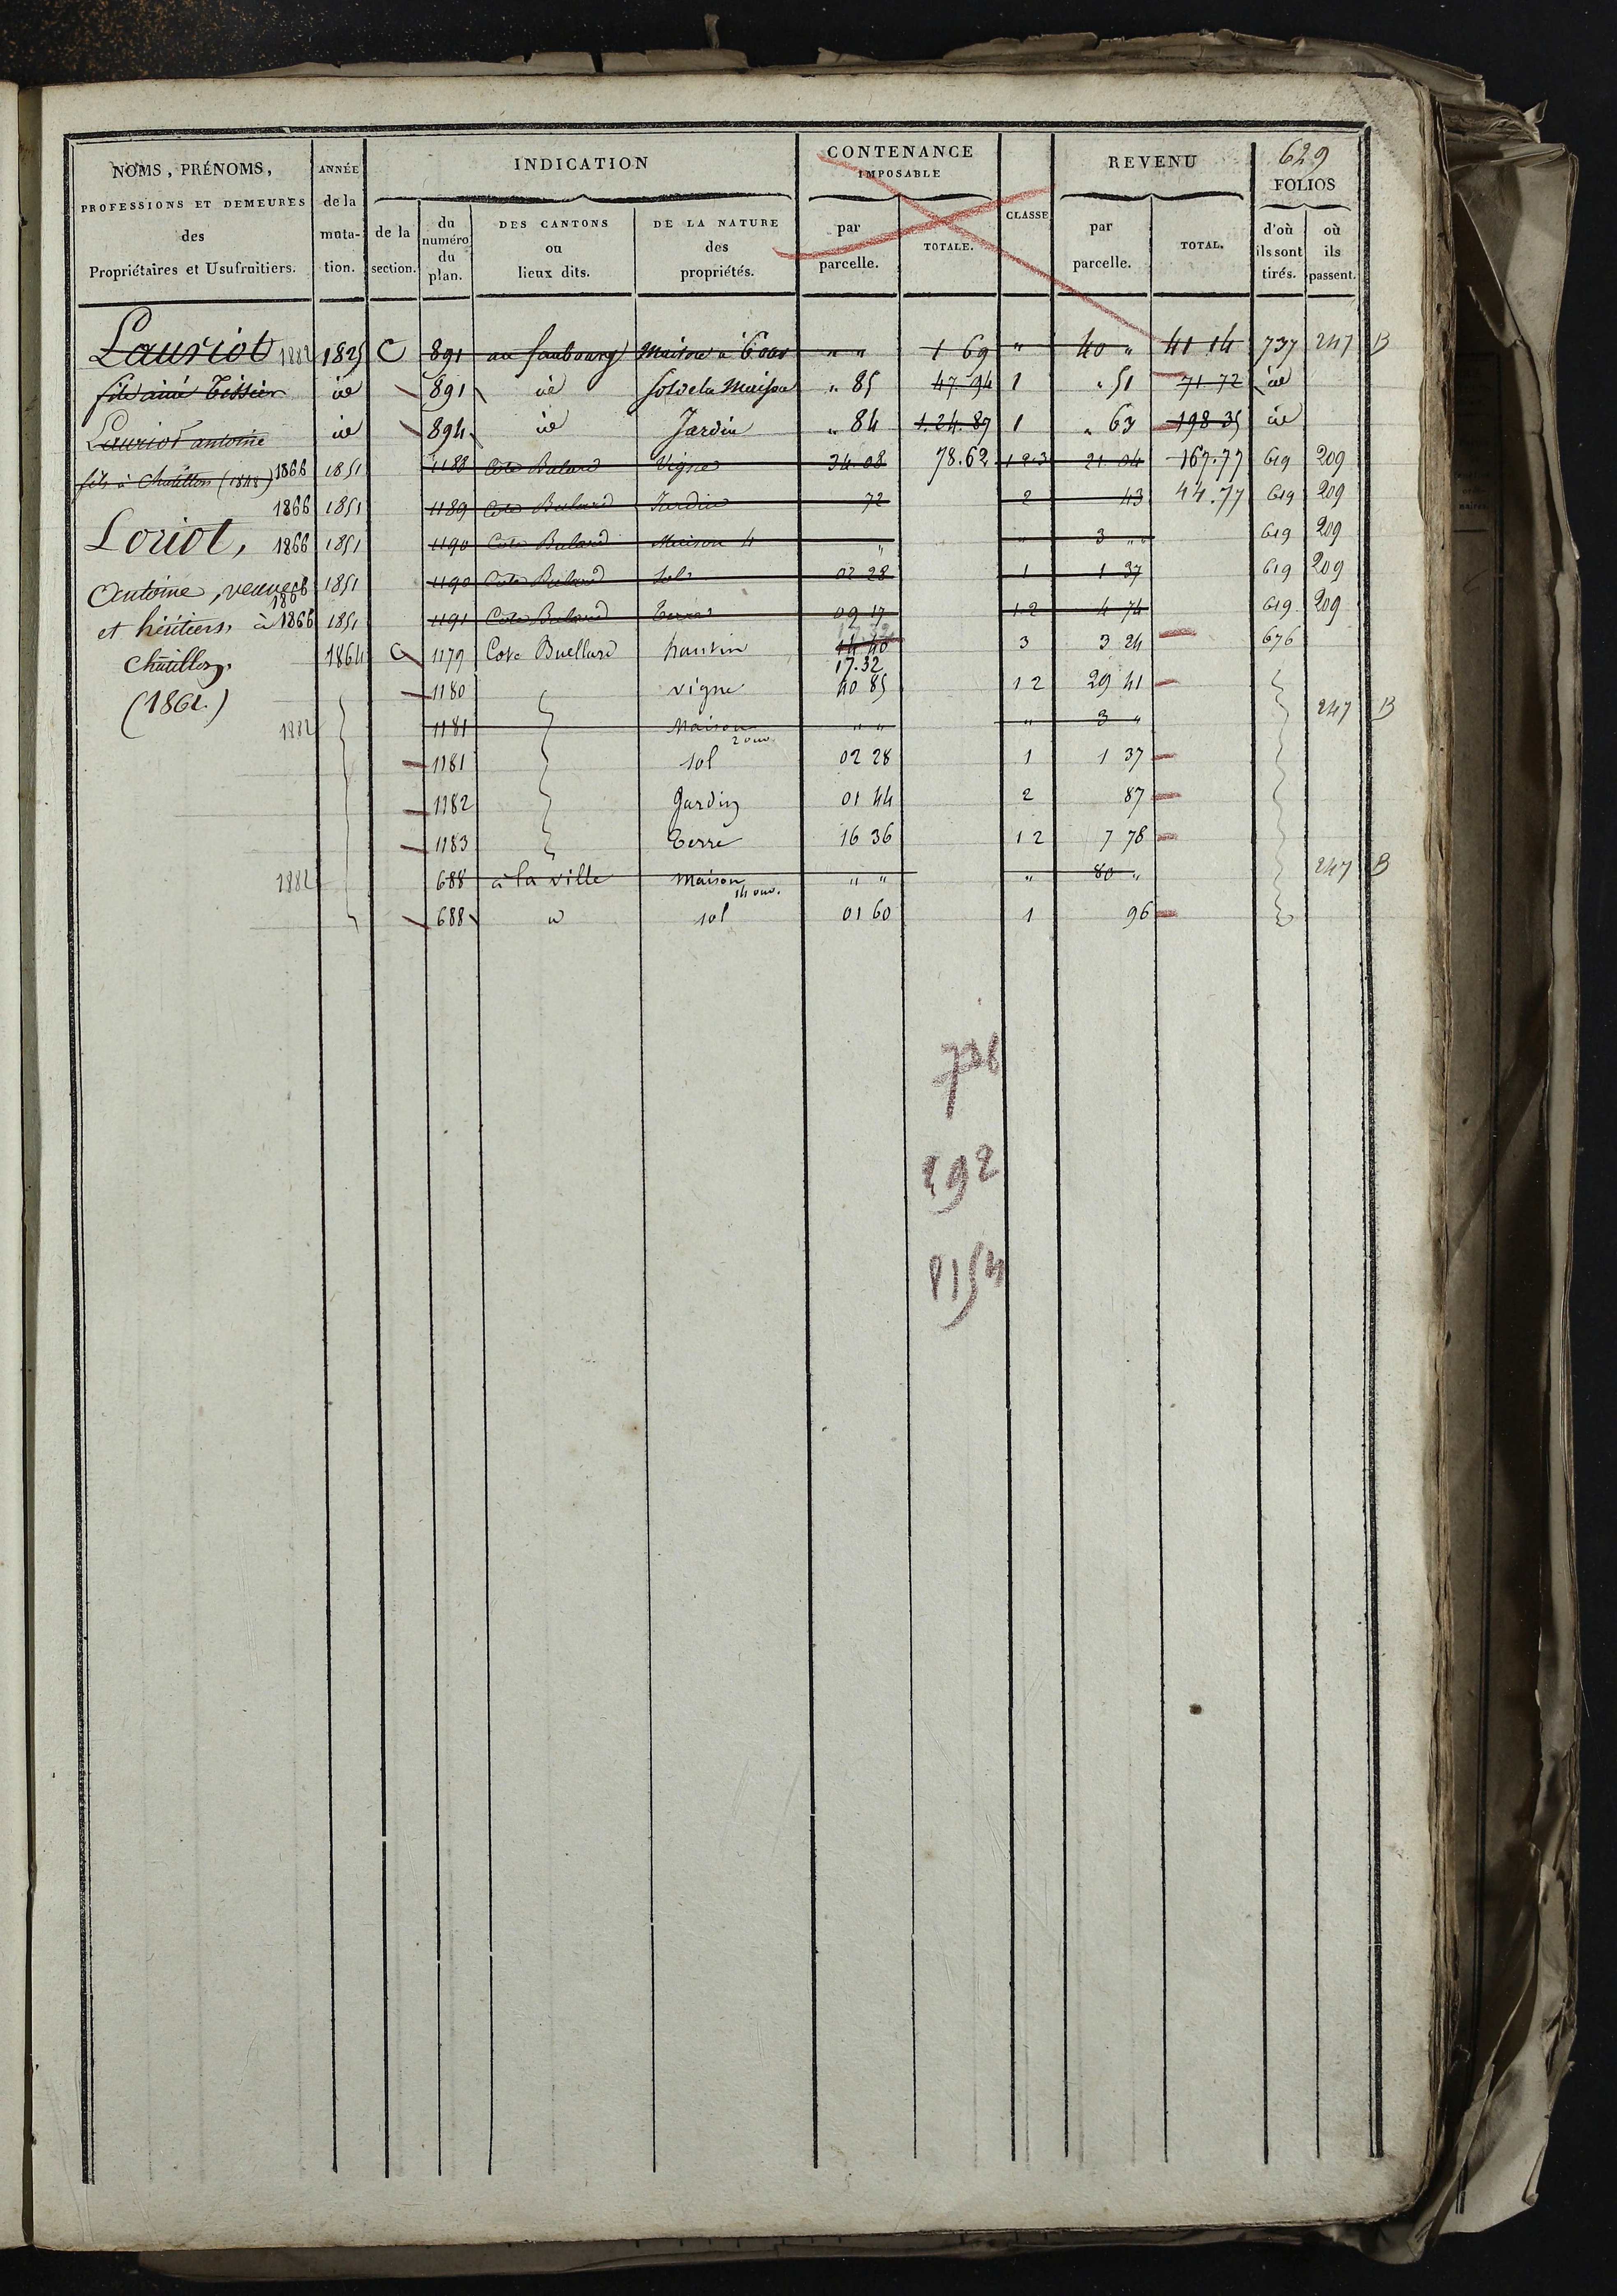 629
NOMS, PRÉNOMS, PROFESSIONS ET DEMEURES des Propriétaires et Usufruitiers.
ANNÉE de la muta-tion.
INDICATION
de la section.
du numéro du plan.
DES CANTONS ou lieux dits.
DE LA NATURE des propriétés.
CONTENANCE IMPOSABLE
par parcelle.
TOTALE.
CLASSE
REVENU
par parcelle.
TOTAL.
FOLIOS
d'où ils sont tirés.
où ils passent.
Lauriot 1882 1825 C 891 au faubourg Maison à 6 ouv " " 1 69 " 40 " 41 14 737 247 B
fils ainé Tissier id 891 id sol de la Maison " 85 47 94 1 " 51 71 72 id
Lauriot antoine id 894 id Jardin " 84 1.24.87 1 " 63 198 35 id
fils à Chatillon (1848) 1866 1851 1188 Cote Bulard Vigne 34 08 78.62 1 2 3 21 04 167.77 619 209
1866 1851 1189 Cote Bulard Jardin 72 2 43 44.77 619 209
Loriot, 1866 1851 1190 Cote Bulard Maison 4 " " 3 " " 619 209
Antoine, veuve 1866 1851 1190 Cote Bulard Sol 02 28 1 1 37 619 209
et héritiers, à 1866 1851 1191 Cote Bulard Terre 09 17 1 2 4 74 619 209
Chatillon. 1864 C 1179 Cote Buellard hautin 14 40 17.32 3 3 24 676
(1862.) 1180 vigne 40 85 1 2 29 41
1882 1181 Maison 2 ouv. " " " 3 " 247 B
1181 sol 02 28 1 1 37
1182 Jardin 01 44 2 87
1183 Terre 16 36 1 2 7 78
1882 688 à la ville Maison 14 ouv. " " " 80 " 247 B
688 id sol 01 60 1 96